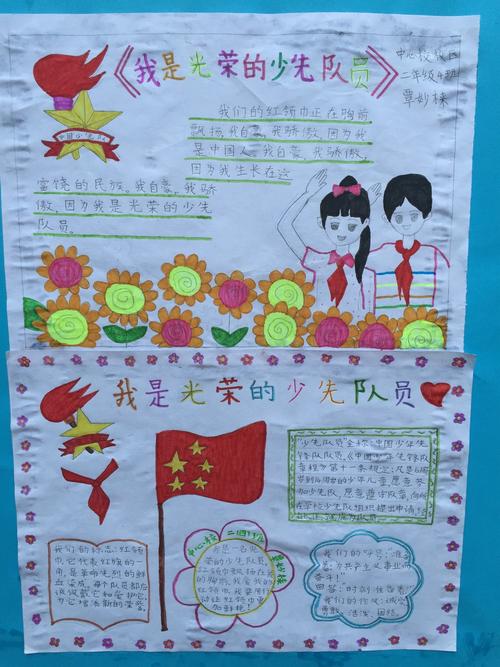 《我是光荣的少先队员》
中心校校区
二年级4班
覃妙栋
中国少先队
我们的红领巾正在胸前
飘扬,我自豪,我骄傲,因为我
是中国人。我自豪,我骄傲,
因为我生长在这
富饶的民族。我自豪,我骄
傲,因为我是光荣的少先
队员。
我是光荣的少先队员
"少先队员"全称:中国少年先
锋队队员。《中国少年先锋队
章程》第十一条规定:凡是6周
岁到14周岁的少年儿童,愿意参
加少先队,愿意遵守队章,向所
在学校少先队组织提出申请,
我们的标志:红领
巾,它代表红旗的一
角,是革命先烈的鲜
血染成。每个队员都应
该戴它和爱护它,
为它增添新的荣誉。
中心校 二四班
我是一名光
荣的少先队员,
红领巾飘扬在我
的胸前,我爱我的
红领巾,我要用行
动让红领巾更
加鲜艳!
我们的呼号:准备
为共产主义事业而
奋斗!"
回答:"时刻准备着!"
我们的作风:诚实、
勇敢、活泼、团结。